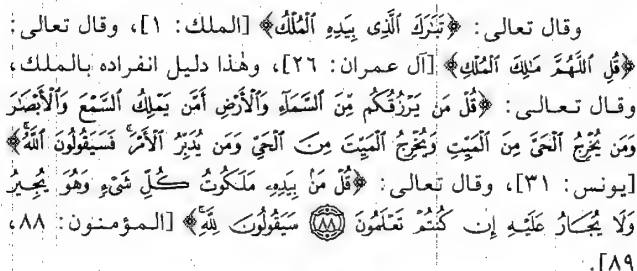 وقال تعالى: ﴿تَبَٰرَكَ ٱلَّذِى بِيَدِهِ ٱلْمُلْكُ﴾ [الملك: ١]، وقال تعالى:
﴿قُلِ ٱللَّهُمَّ مَٰلِكَ ٱلْمُلْكِ﴾ [آل عمران: ٢٦]، وهٰذا دليل انفراده بالملك،
وقال تعالى: ﴿قُلْ مَن يَرْزُقُكُم مِّنَ ٱلسَّمَآءِ وَٱلْأَرْضِ أَمَّن يَمْلِكُ ٱلسَّمْعَ وَٱلْأَبْصَٰرَ
وَمَن يُخْرِجُ ٱلْحَىَّ مِنَ ٱلْمَيِّتِ وَيُخْرِجُ ٱلْمَيِّتَ مِنَ ٱلْحَىِّ وَمَن يُدَبِّرُ ٱلْأَمْرَ ۚ فَسَيَقُولُونَ ٱللَّهُ ۚ﴾
[يونس: ٣١]، وقال تعالى: ﴿قُلْ مَنۢ بِيَدِهِۦ مَلَكُوتُ كُلِّ شَىْءٍ وَهُوَ يُجِيرُ
وَلَا يُجَارُ عَلَيْهِ إِن كُنتُمْ تَعْلَمُونَ ﴿٨٨﴾ سَيَقُولُونَ لِلَّهِ ۚ﴾ [المؤمنون: ٨٨،
٨٩].